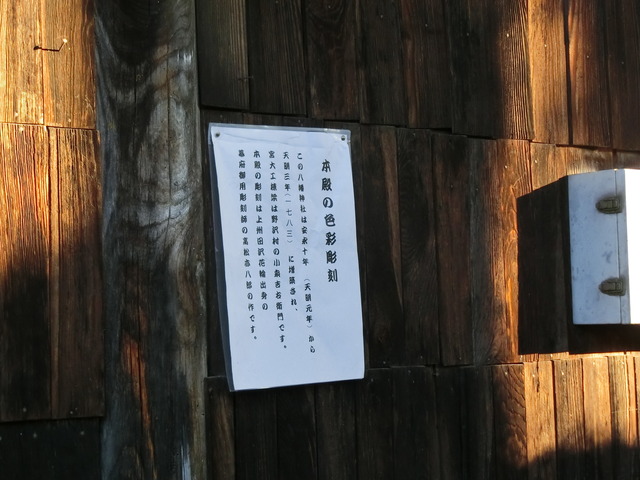 本殿の色彩彫刻
この八幡神社は安永十年 (天明元年) から
天明三年(一七八三) に増築され、
宮大工棟梁は野沢村の小泉吉右衛門です。
本殿の彫刻は上州田沢花輪出身の
幕府御用彫刻師の高松亦八郎の作です。